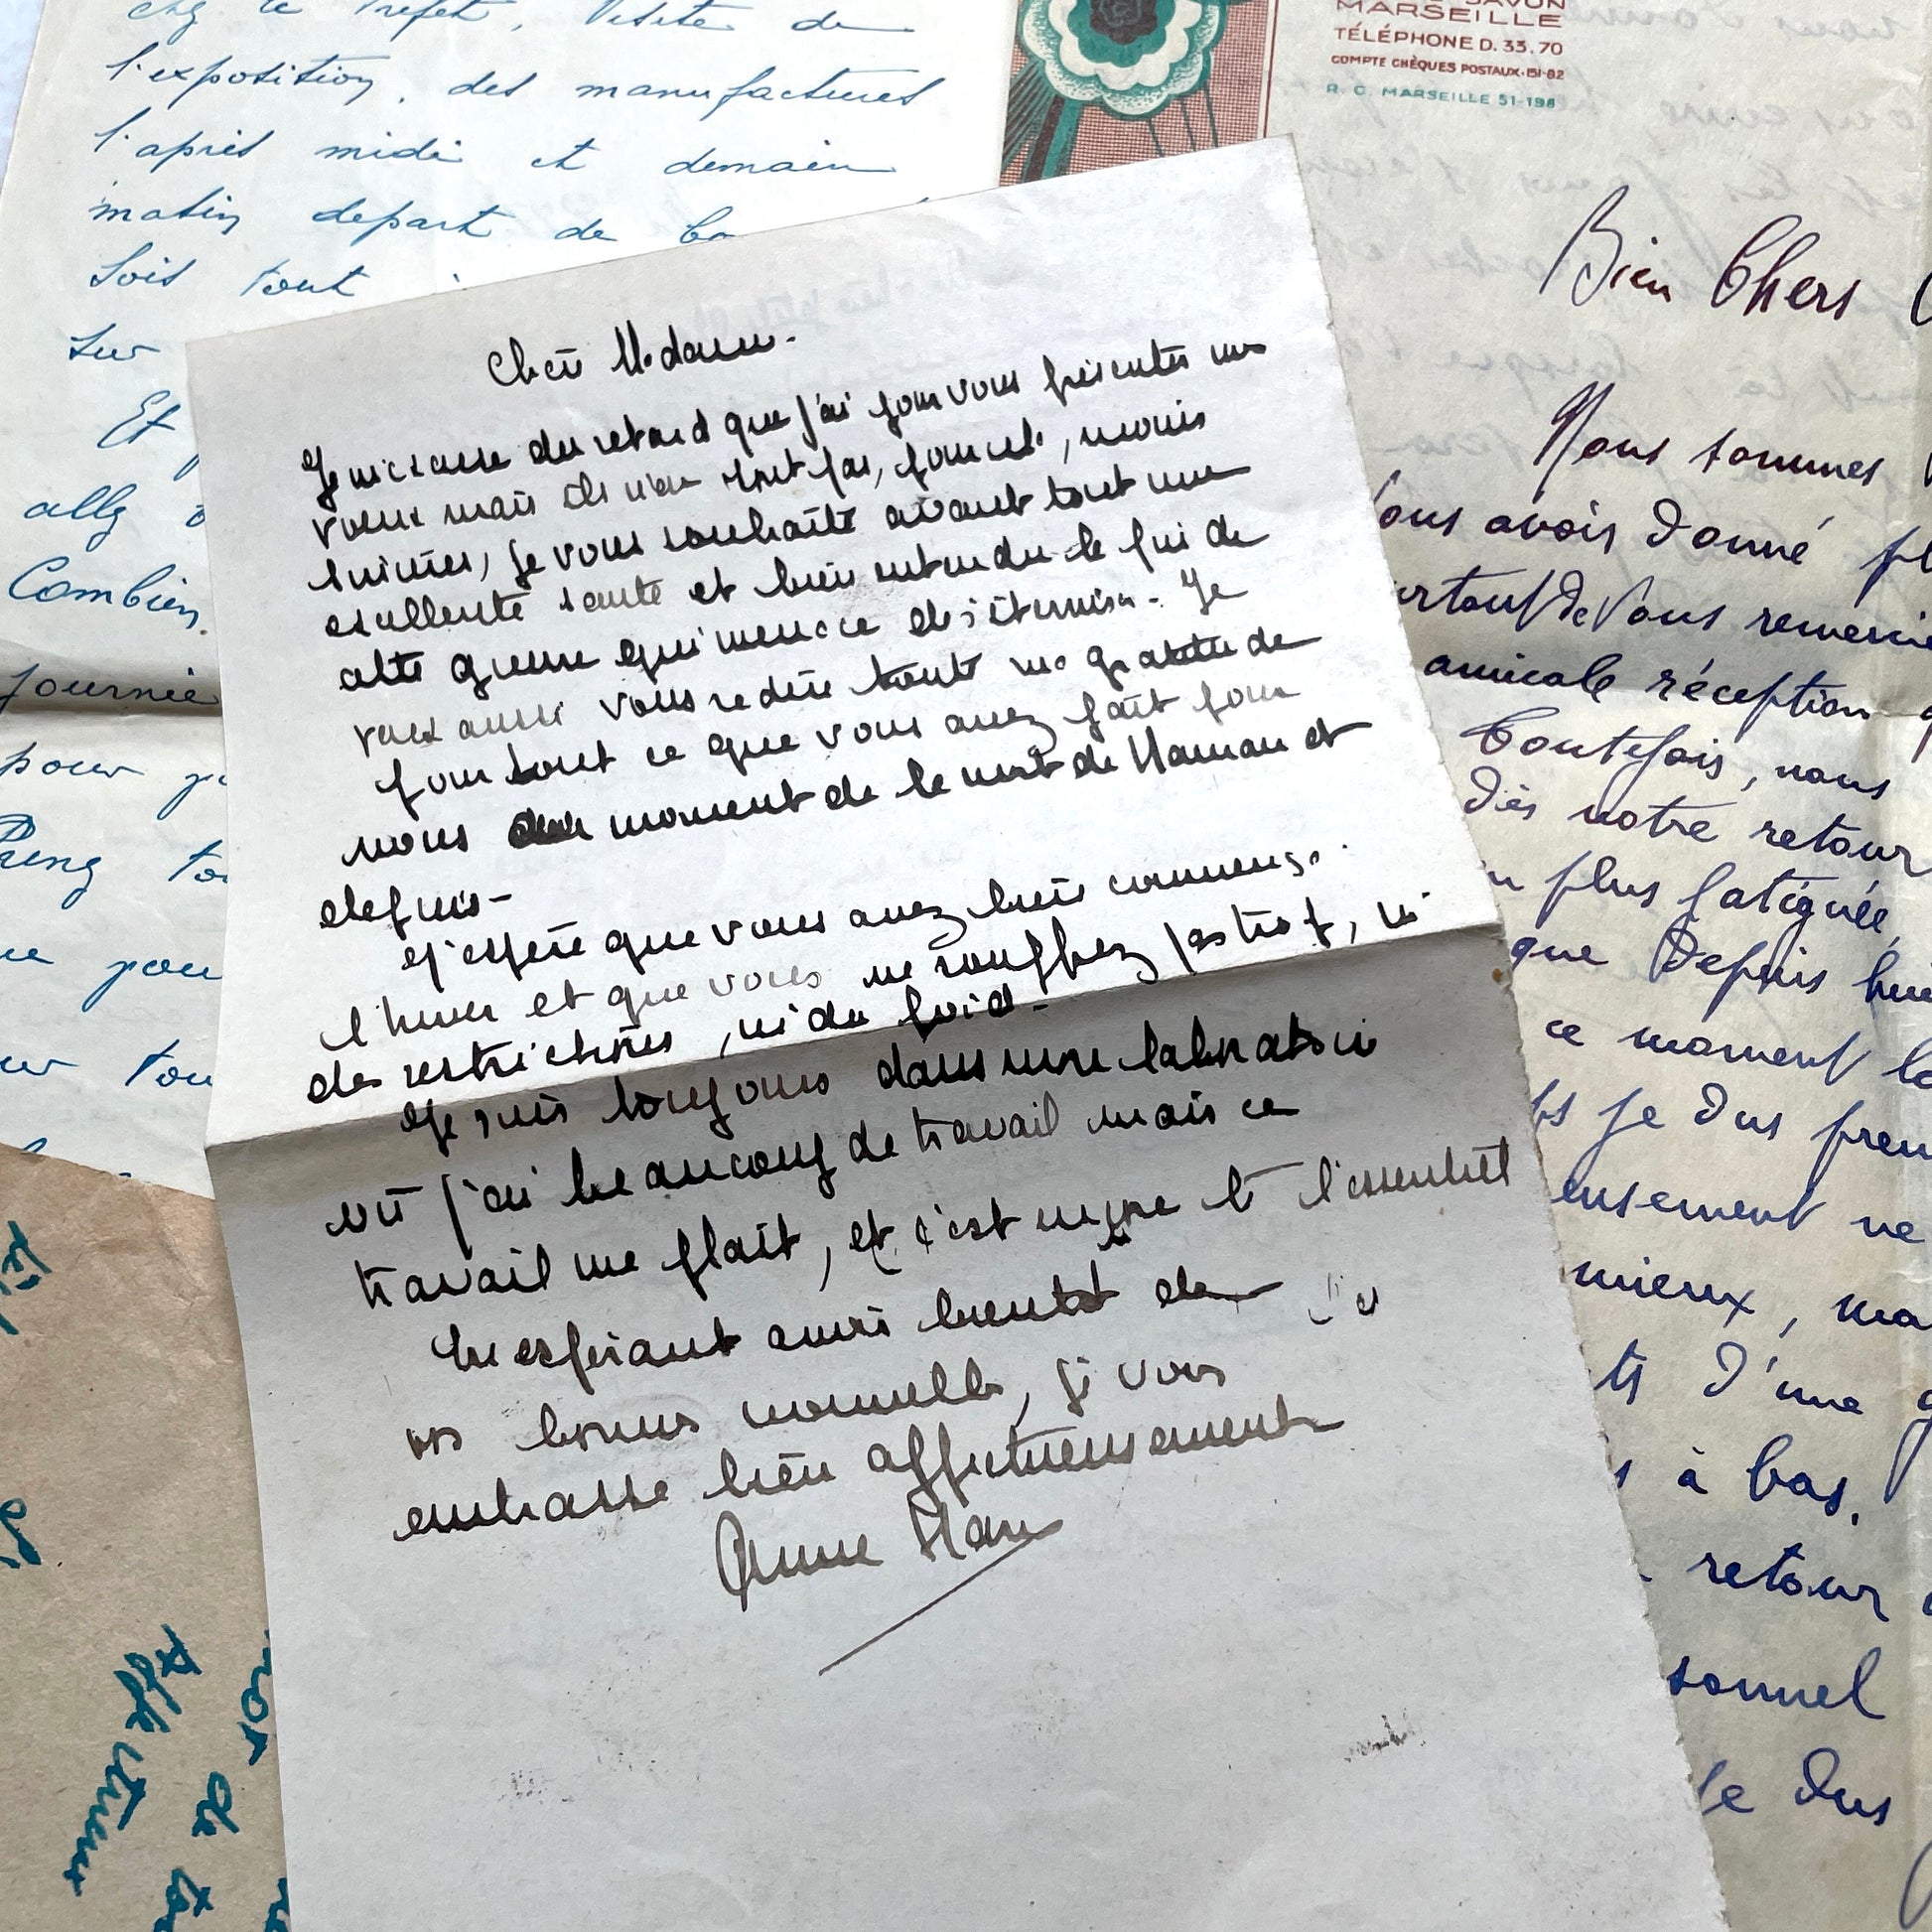 chez le Préfet, Visite de
l'exposition, des manufactures
l'après midi et demain
matin depart de
Sois tout
sur
Et
allz
Combien
journée
pour
Prenz
pour
tou
SAVON
MARSEILLE
TÉLÉPHONE D. 33.70
COMPTE CHÈQUES POSTAUX·151-82
R. C. MARSEILLE 51-198
Chère Madame.
Je m'excuse du retard que j'ai pour vous présenter mes
voeux mais ils n'en sont pas, pour cela, moins
sincères, je vous souhaite avant tout une
excellente santé et bien entendu la fin de
cette guerre qui menace de s'éterniser. Je
veux aussi vous redire toute ma gratitude
pour tout ce que vous avez fait pour
nous au moment de la mort de Maman et
depuis.
J'espère que vous avez bien commencé
l'hiver et que vous ne souffrez pas trop, ni
des restrictions, ni du froid.
Je suis toujours dans mon laboratoire
où j'ai beaucoup de travail mais ce
travail me plaît, et c'est l'essentiel
En espérant avoir bientôt de
vos bonnes nouvelles, je vous
embrasse bien affectueusement
Anne
Bien Chers
Nous sommes
Vous avoir donné
surtout de Vous remercier
amicale réception
Toutefois, nous
Dès notre retour
plus fatiguée,
que Depuis
ce moment
je Dus
ensement ne
mieux, ma
D'une
à bas.
retour
sonnel
le Dus
de
Affectueux